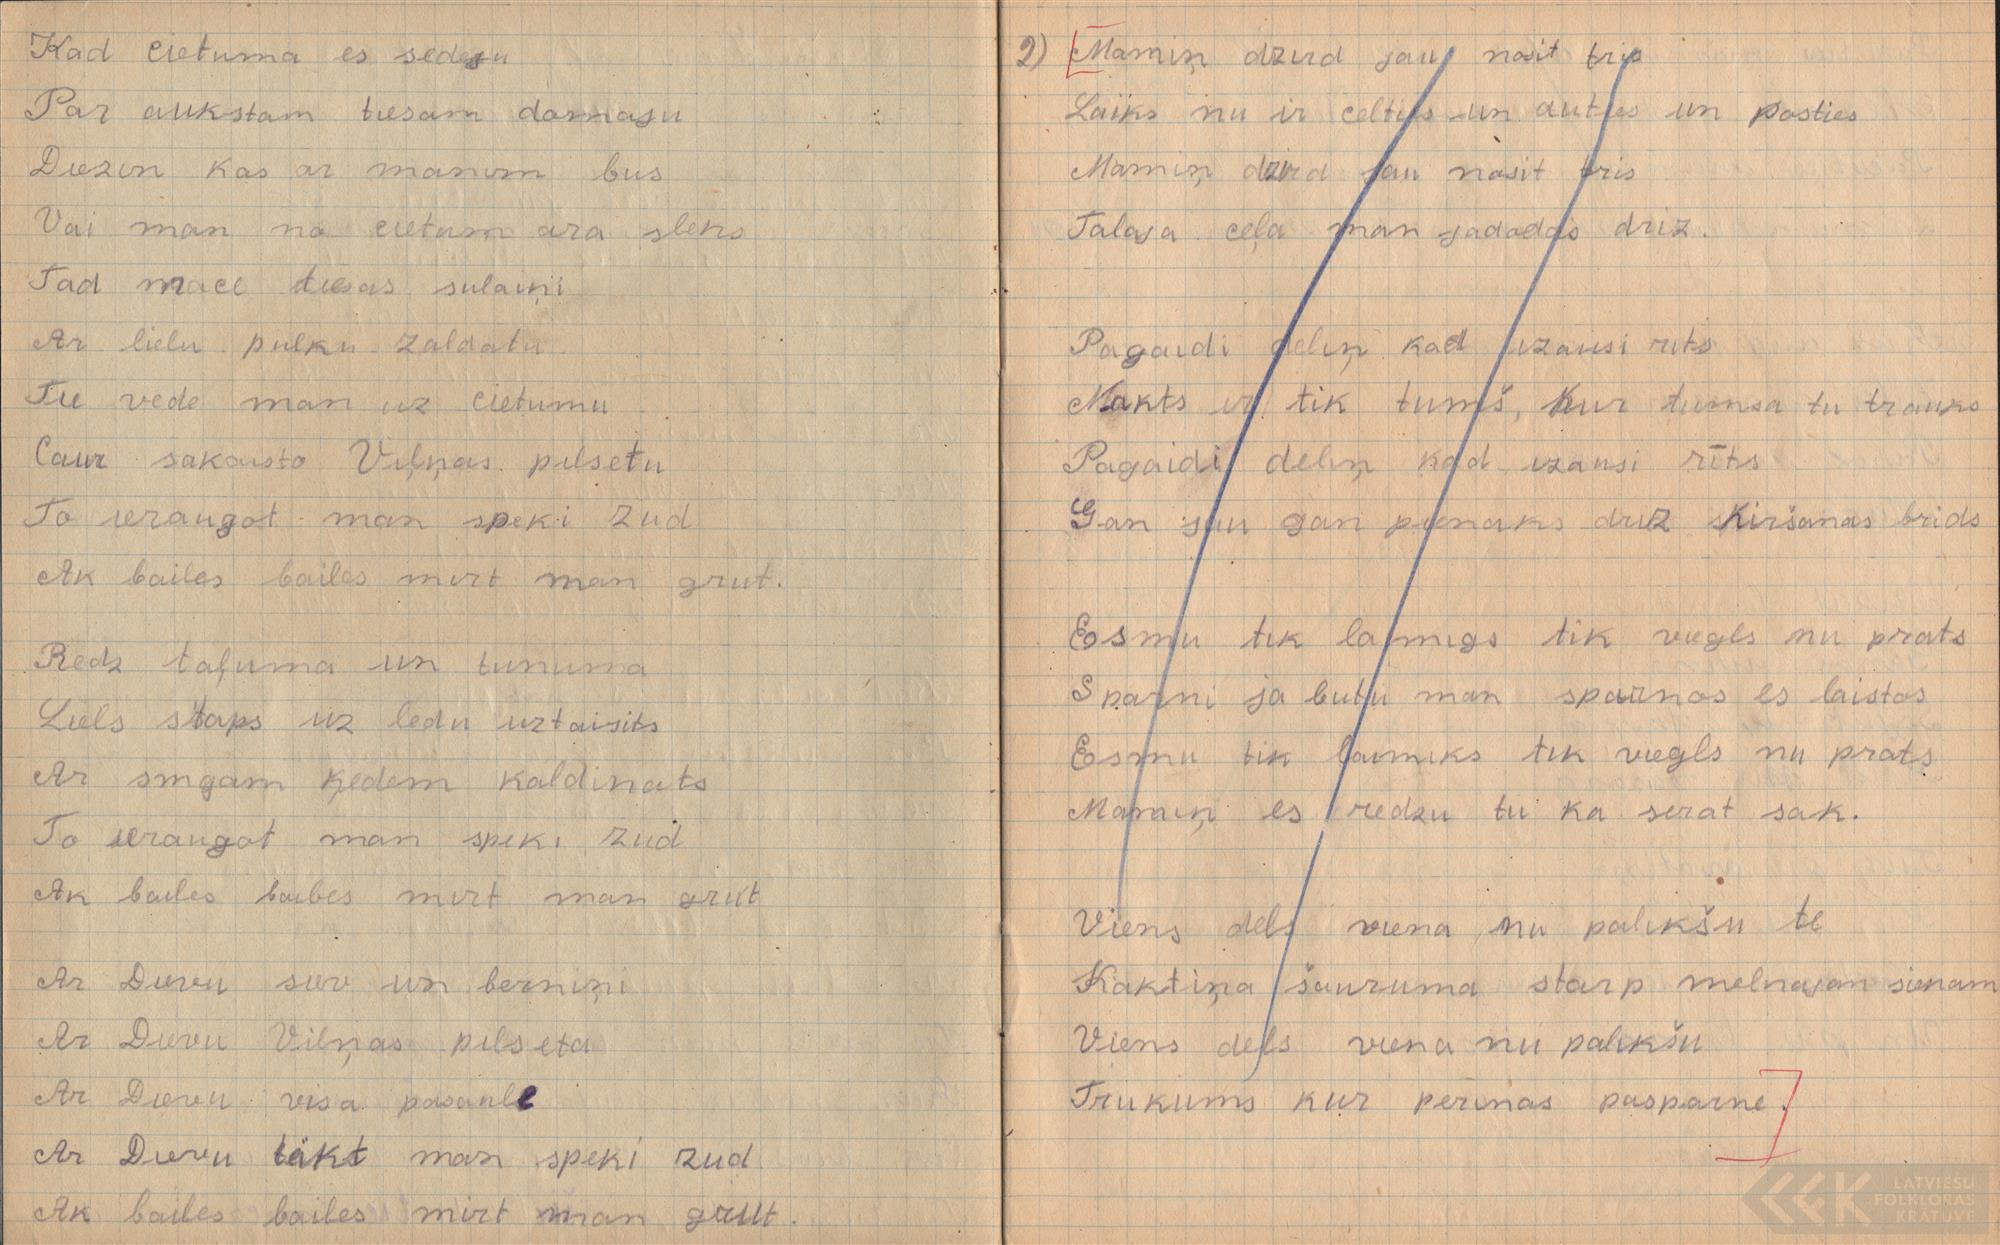 Kad cietuma es sedeju
Par aukstam tiesam domaju
Diezin kas ar manim bus
Vai man no cietum ara sleks
Tad nace tiesas sulaiņi
Ar lielu pulku zaldatu
Tie vede man uz cietumu
Caur skaisto Viļņas pilsetu
To ieraugot man speki zud
Ak bailes bailes mirt man grut.
Redz taļuma un tunuma
Liels staps uz ledu uztaisits
Ar smgam ķedem kaldinats
To ieraugot man speki zud
Ak bailes bailes mirt man grut
Ar Dievu siev un berniņi
Ar Dievu Viļņas pilseta
Ar Dievu visa pasaule
Ar Dievu täkt man speki zud
Ak bailes bailes mirt man grut.
2) Mamiņ dzird jau nosit tris
Laiks nu ir celties un auties un posties
Mamiņ dzird jau nosit tris
Talaja ceļa man jadodas driz.
Pagaidi deliņ kad uzausi rits
Nakts ir tik tumš, kur tumsa tu trauks
Pagaidi deliņ kad uzausi rīts
Gan jau gan pienaks driz skiršanas brids
Esmu tik laimigs tik viegls nu prats
Sparni ja butu man sparnos es laistos
Esmu tik laimiks tik viegls nu prats
Mamiņ es redzu tu ka serat sak.
Viens dels viena nu palikšu te
Kaktiņa šauruma starp melnajan sienam
Viens dels viena nu palikšu
Trukums kur perinas pasparne.
LATVIEŠU
FOLKLORAS
KRĀTUVE